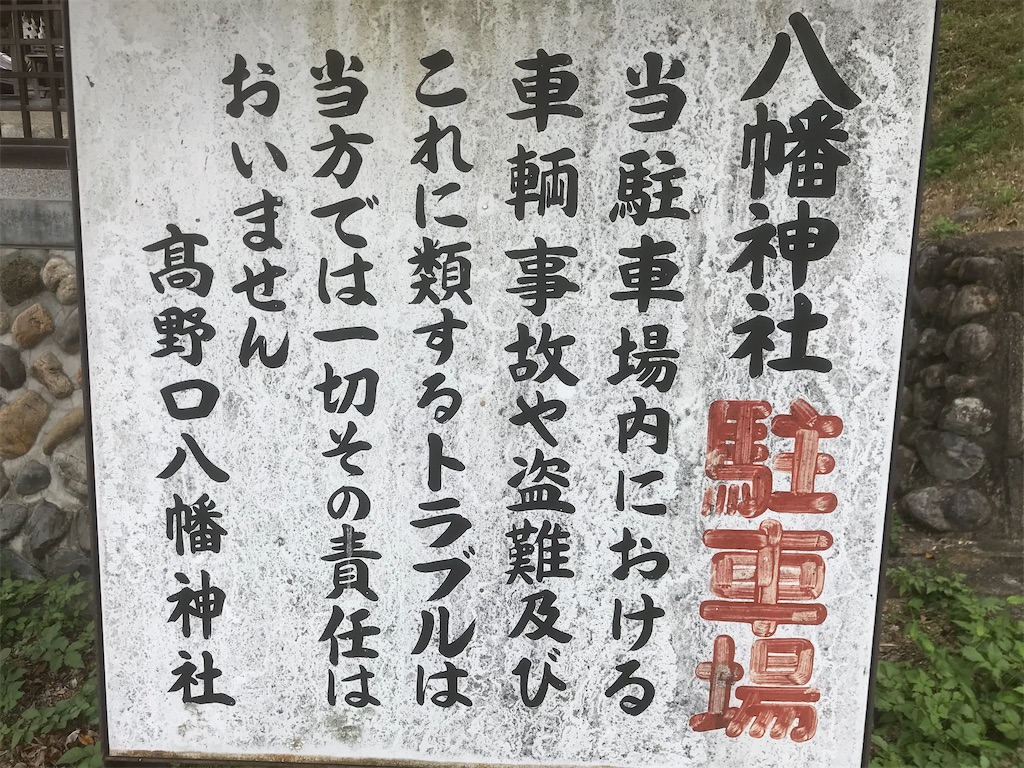 八幡神社 駐車場
当駐車場内における
車輌事故や盗難及び
これに類するトラブルは
当方では一切その責任は
おいません
髙野口八幡神社